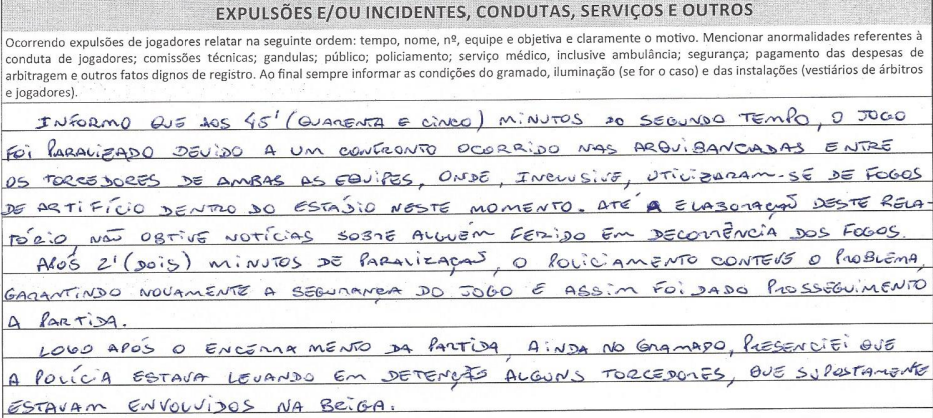 EXPULSÕES E/OU INCIDENTES, CONDUTAS, SERVIÇOS E OUTROS
Ocorrendo expulsões de jogadores relatar na seguinte ordem: tempo, nome, nº, equipe e objetiva e claramente o motivo. Mencionar anormalidades referentes à
conduta de jogadores; comissões técnicas; gandulas; público; policiamento; serviço médico, inclusive ambulância; segurança; pagamento das despesas de
arbitragem e outros fatos dignos de registro. Ao final sempre informar as condições do gramado, iluminação (se for o caso) e das instalações (vestiários de árbitros
e jogadores).
INFORMO QUE AOS 45' (QUARENTA E CINCO) MINUTOS DO SEGUNDO TEMPO, O JOGO
FOI PARALIZADO DEVIDO A UM CONFRONTO OCORRIDO NAS ARQUIBANCADAS ENTRE
OS TORCEDORES DE AMBAS AS EQUIPES, ONDE, INCLUSIVE, UTILIZARAM-SE DE FOGOS
DE ARTIFÍCIO DENTRO DO ESTÁDIO NESTE MOMENTO. ATÉ A ELABORAÇÃO DESTE RELA-
TÓRIO, NÃO OBTIVE NOTÍCIAS SOBRE ALGUÉM FERIDO EM DECORRÊNCIA DOS FOGOS.
APÓS 2' (DOIS) MINUTOS DE PARALIZAÇÃO, O POLICIAMENTO CONTEVE O PROBLEMA,
GARANTINDO NOVAMENTE A SEGURANÇA DO JOGO E ASSIM FOI DADO PROSSEGUIMENTO
A PARTIDA.
LOGO APÓS O ENCERRAMENTO DA PARTIDA, AINDA NO GRAMADO, PRESENCIEI QUE
A POLÍCIA ESTAVA LEVANDO EM DETENÇÃO ALGUNS TORCEDORES, QUE SUPOSTAMENTE
ESTAVAM ENVOLVIDOS NA BRIGA.